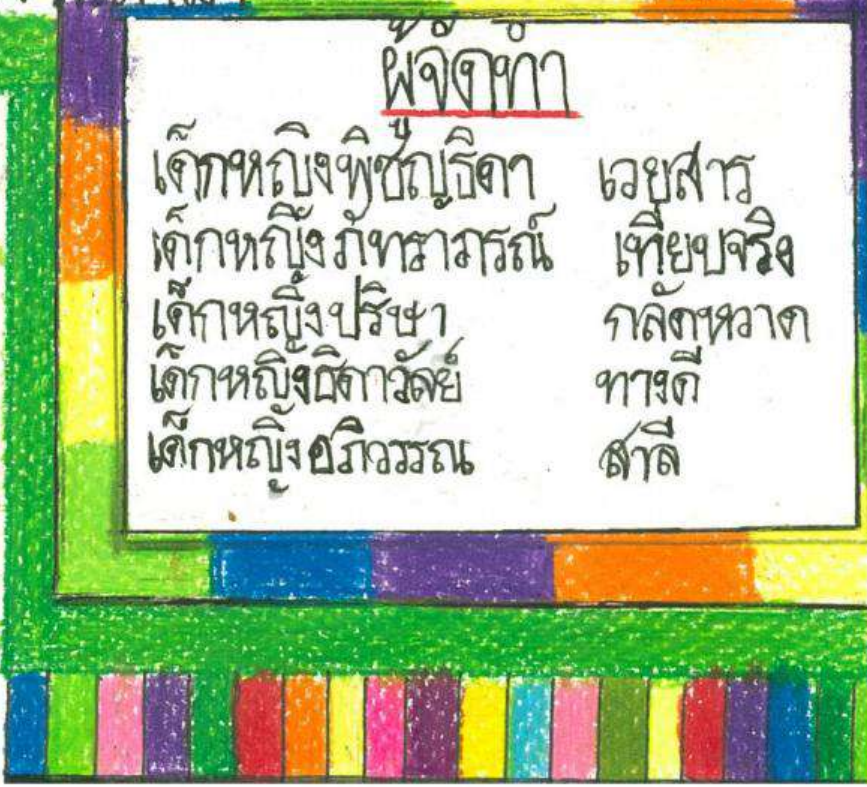 ผู้จัดทำ
เด็กหญิงพิชัญธิดา เวยสาร
เด็กหญิงภัทราภรณ์ เทียบจริง
เด็กหญิงปริษา กลัดหวาด
เด็กหญิงธิดาวัลย์ ทางดี
เด็กหญิงอภิวรรณ สาลี